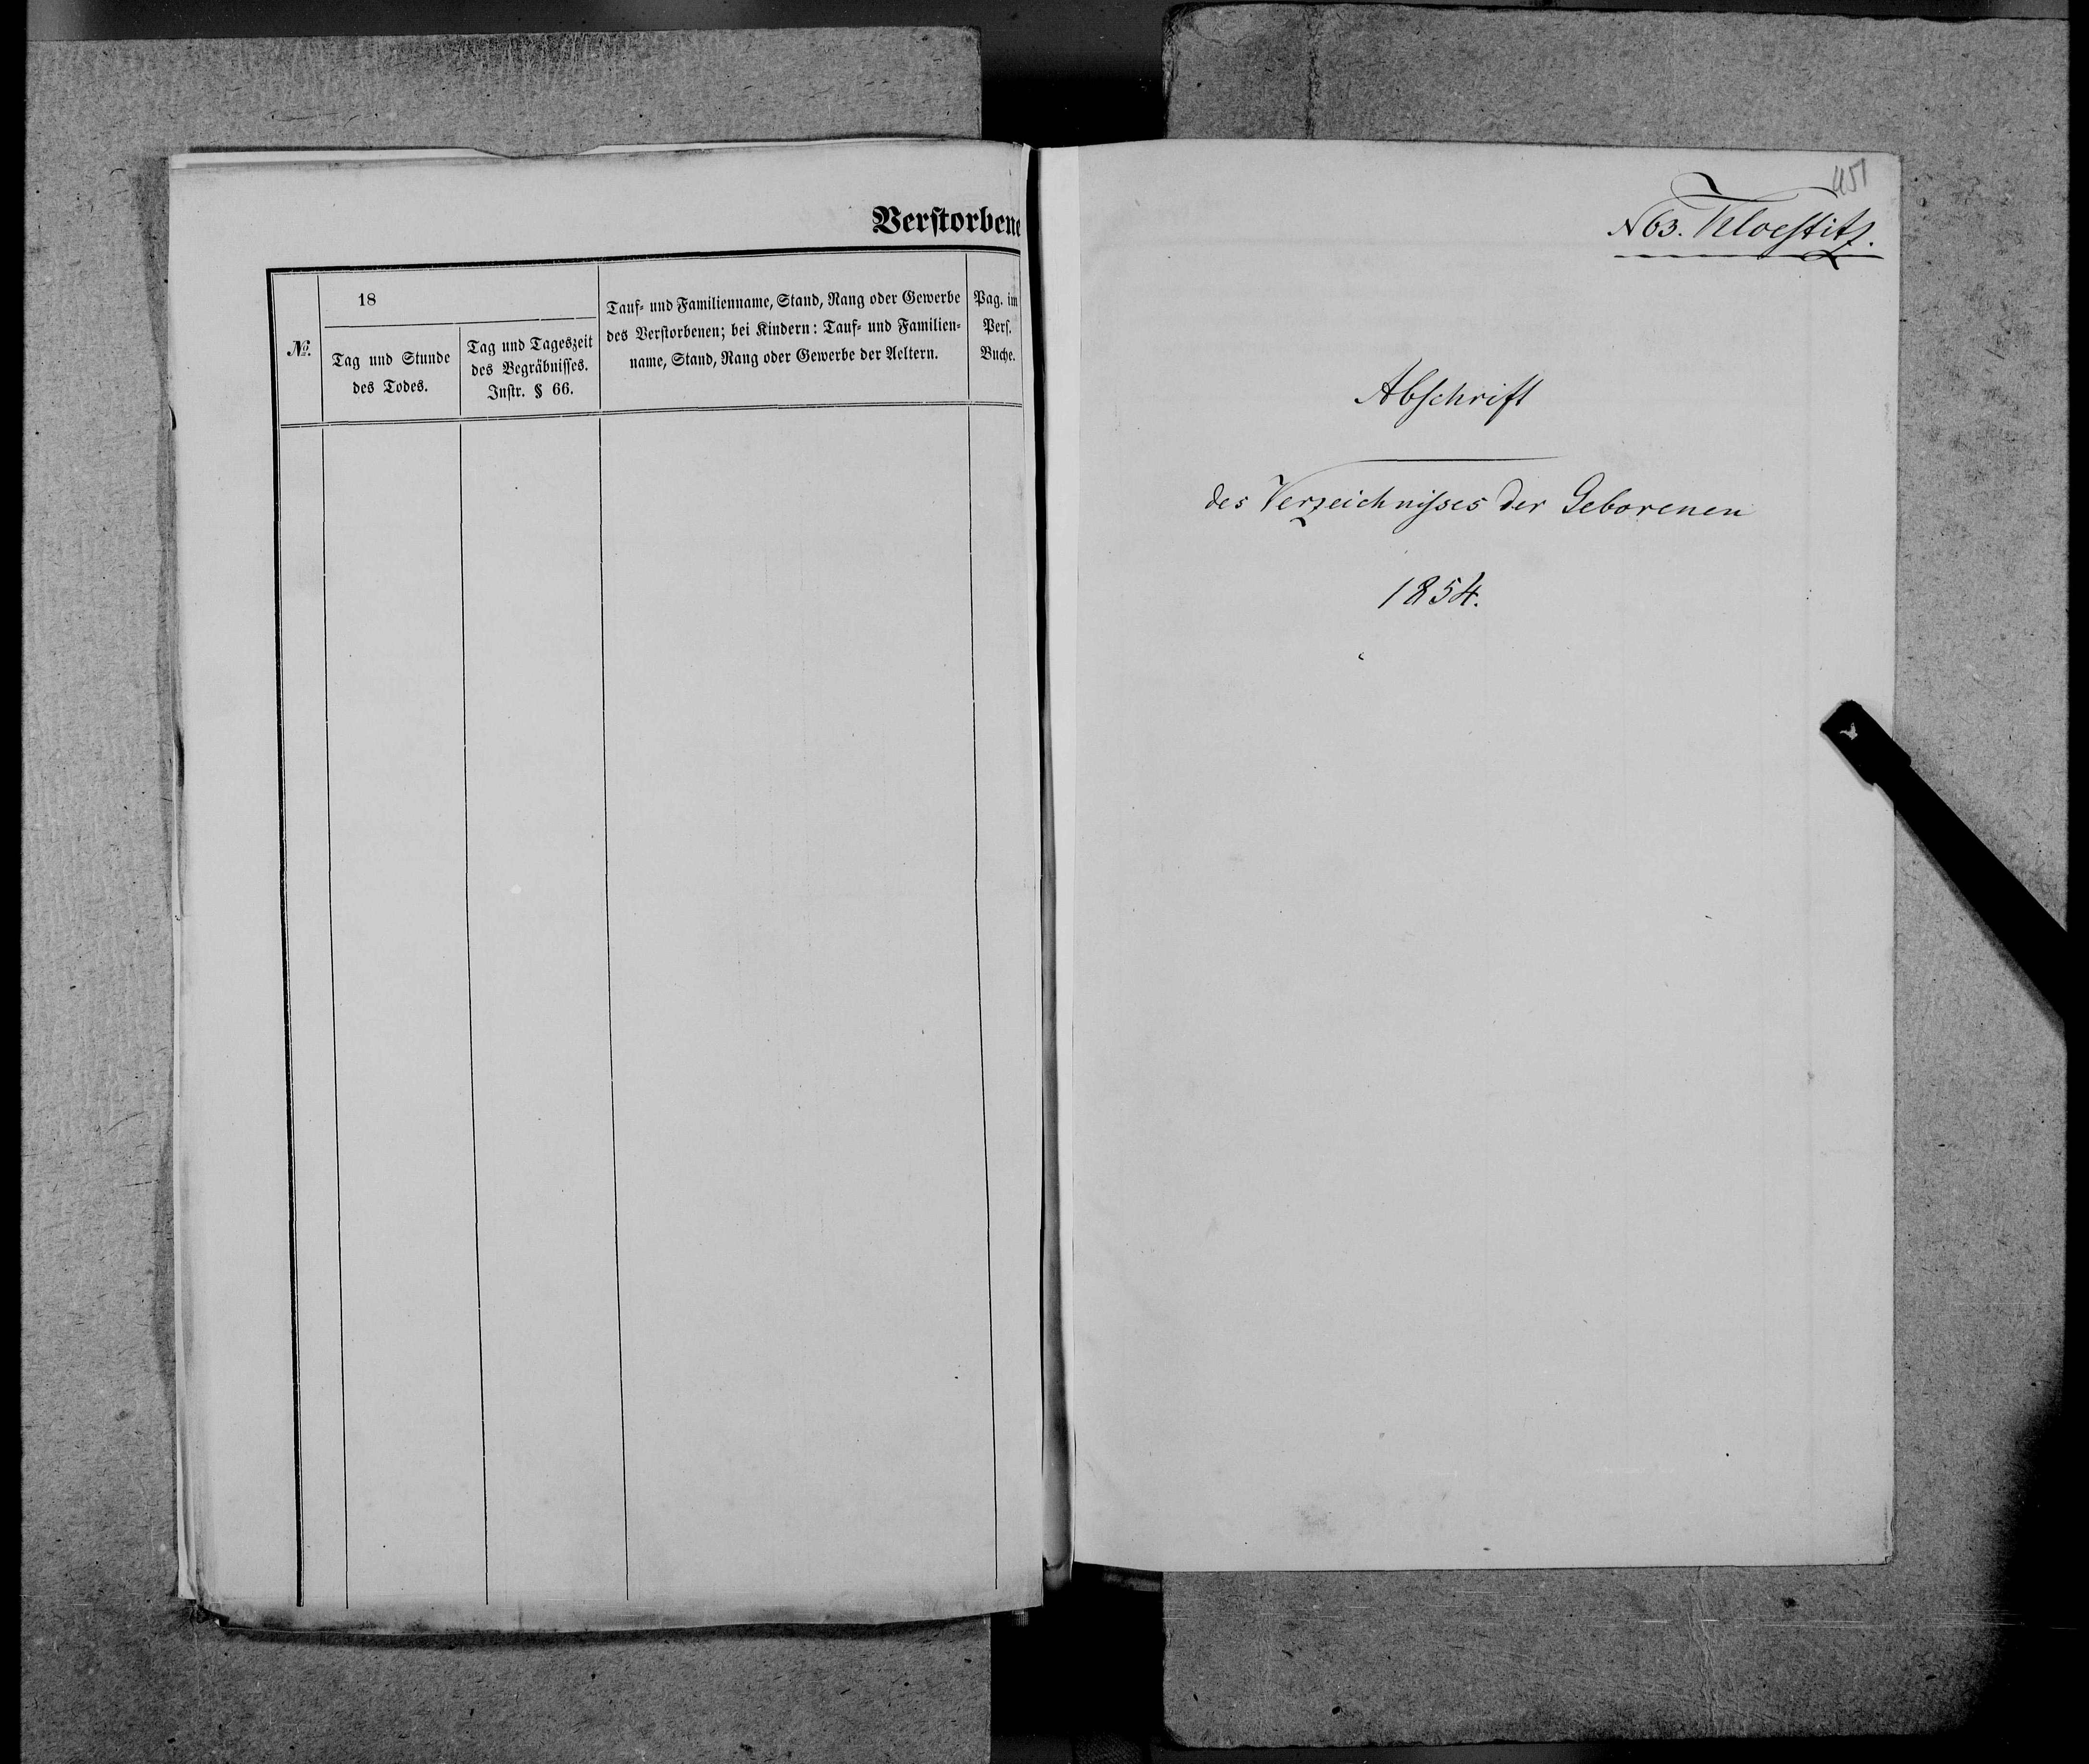 Verstorbene
№.
18
Tag und Stunde
des Todes.
Tag und Tageszeit
des Begräbnisses.
Instr. § 66.
Tauf- und Familienname, Stand, Rang oder Gewerbe
des Verstorbenen; bei Kindern: Tauf- und Familien-
name, Stand, Rang oder Gewerbe der Aeltern.
Pag. im
Pers.
Buche.
451
N 63. Kloestitz.
Abschrift
des Verzeichnisses der Geborenen
1854.